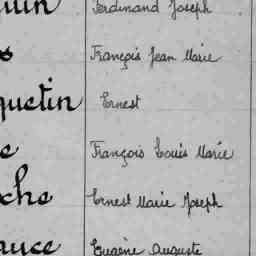 Ferdinand Joseph
François Jean Marie
quetin Ernest
François Louis Marie
che Ernest Marie Joseph
Eugène Auguste